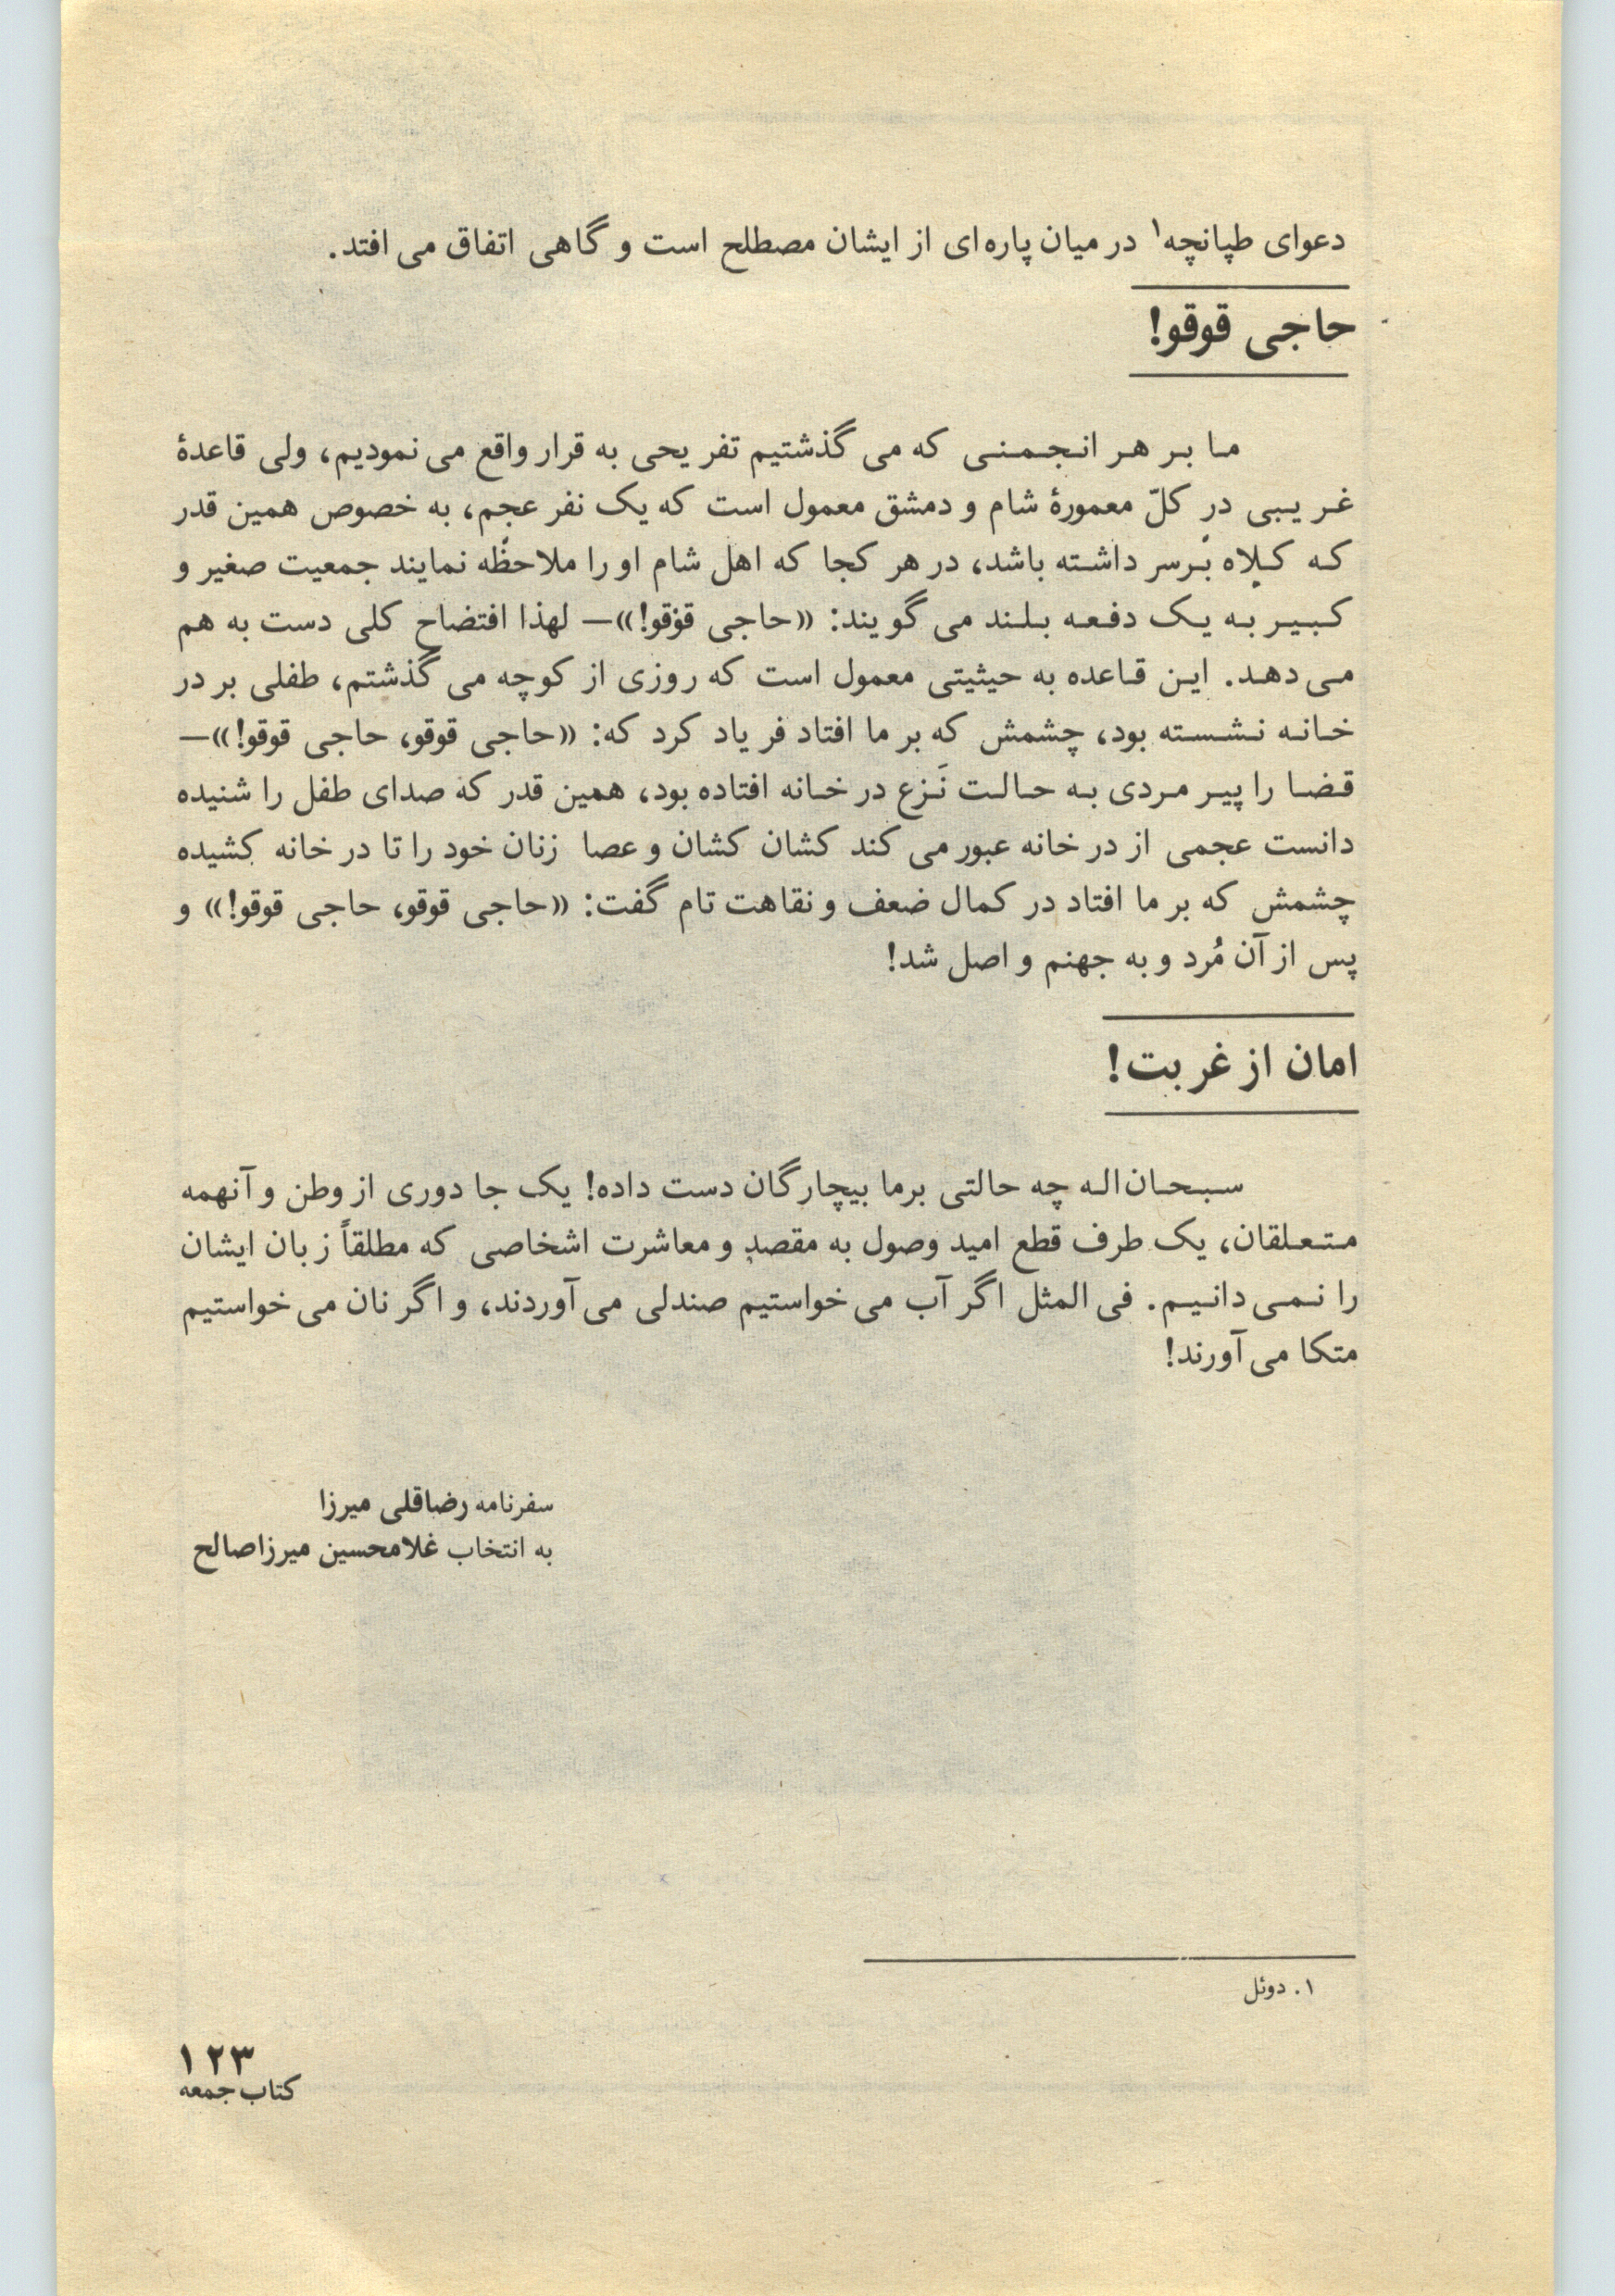 دعوای طپانچه۱ در میان پاره‌ای از ایشان مصطلح است و گاهی اتفاق می‌افتد.
حاجی قوقو!
ما بر هر انجمنی که می‌گذشتیم تفریحی به قرار واقع می‌نمودیم، ولی قاعدهٔ
غریبی در کلّ معمورهٔ شام و دمشق معمول است که یک نفر عجم، به خصوص همین قدر
که کلاه برسر داشته باشد، در هر کجا که اهل شام او را ملاحظه نمایند جمعیت صغیر و
کبیر به یک دفعه بلند می‌گویند: «حاجی قوقو!»— لهذا افتضاح کلی دست به هم
می‌دهد. این قاعده به حیثیتی معمول است که روزی از کوچه می‌گذشتم، طفلی بر در
خانه نشسته بود، چشمش که بر ما افتاد فریاد کرد که: «حاجی قوقو، حاجی قوقو!»—
قضا را پیر مردی به حالت نَزع در خانه افتاده بود، همین قدر که صدای طفل را شنیده
دانست عجمی از در خانه عبور می‌کند کشان کشان و عصا زنان خود را تا در خانه کشیده
چشمش که بر ما افتاد در کمال ضعف و نقاهت تام گفت: «حاجی قوقو، حاجی قوقو!» و
پس از آن مُرد و به جهنم و اصل شد!
امان از غربت!
سبحان‌اله چه حالتی برما بیچارگان دست داده! یک جا دوری از وطن و آنهمه
متعلقان، یک طرف قطع امید وصول به مقصد و معاشرت اشخاصی که مطلقاً زبان ایشان
را نمی‌دانیم. فی‌المثل اگر آب می‌خواستیم صندلی می‌آوردند، و اگر نان می‌خواستیم
متکا می‌آورند!
سفرنامه رضاقلی میرزا
به انتخاب غلامحسین میرزاصالح
۱. دوئل
۱۲۳
کتاب جمعه